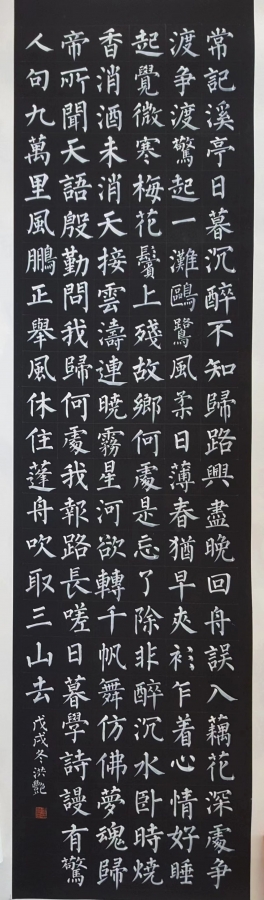 常記溪亭日暮沉醉不知歸路興盡晚回舟誤入藕花深處争
渡争渡驚起一灘鷗鷺風柔日薄春猶早夾衫乍着心情好睡
起覺微寒梅花鬢上殘故鄉何處是忘了除非醉沉水卧時燒
香消酒未消天接雲濤連曉霧星河欲轉千帆舞仿佛夢魂歸
帝所聞天語殷勤問我歸何處我報路長嗟日暮學詩謾有驚
人句九萬里風鵬正舉風休住蓬舟吹取三山去
戊戌冬洪艷